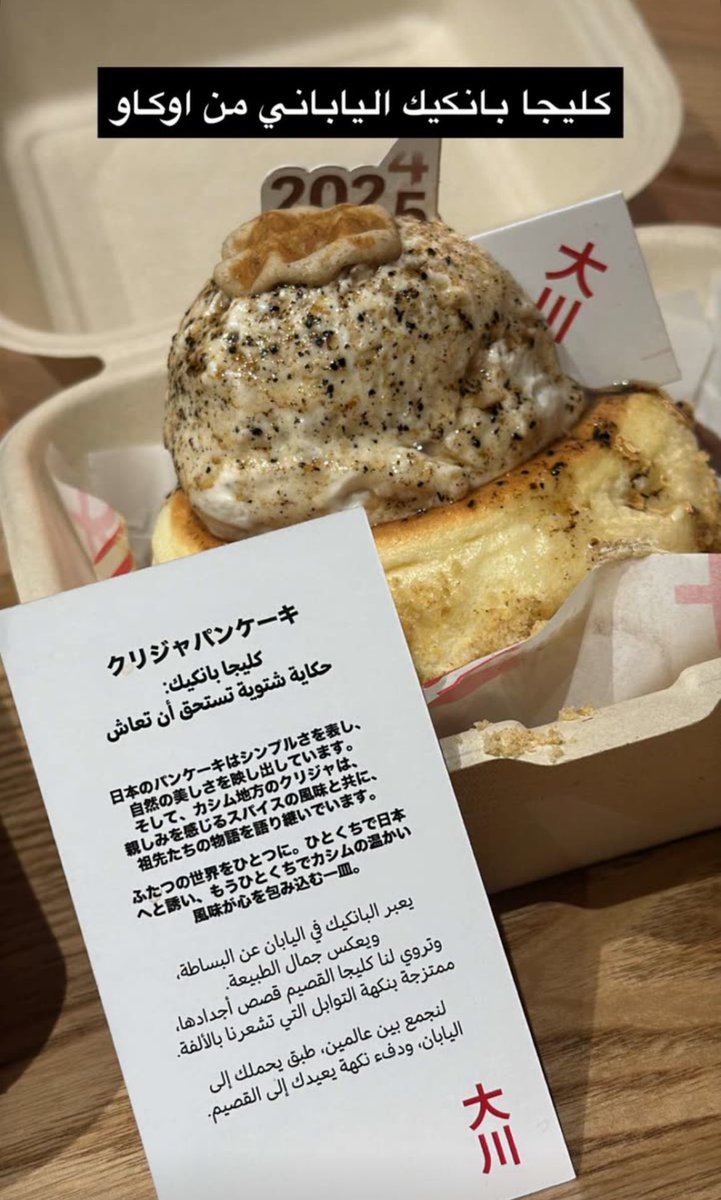 كليجا بانكيك الياباني من اوكاو
2024
5
大川
クリジャパンケーキ
كليجا بانكيك:
حكاية شتوية تستحق أن تعاش
日本のパンケーキはシンプルさを表し、
自然の美しさを映し出しています。
そして、カシム地方のクリジャは、
親しみを感じるスパイスの風味と共に、
祖先たちの物語を語り継いでいます。
ふたつの世界をひとつに。ひとくちで日本
へと誘い、もうひとくちでカシムの温かい
風味が心を包み込む一皿。
يعبر البانكيك في اليابان عن البساطة،
ويعكس جمال الطبيعة.
وتروي لنا كليجا القصيم قصص أجدادها،
ممتزجة بنكهة التوابل التي تشعرنا بالألفة.
لنجمع بين عالمين، طبق يحملك إلى
اليابان، ودفء نكهة يعيدك إلى القصيم.
大川